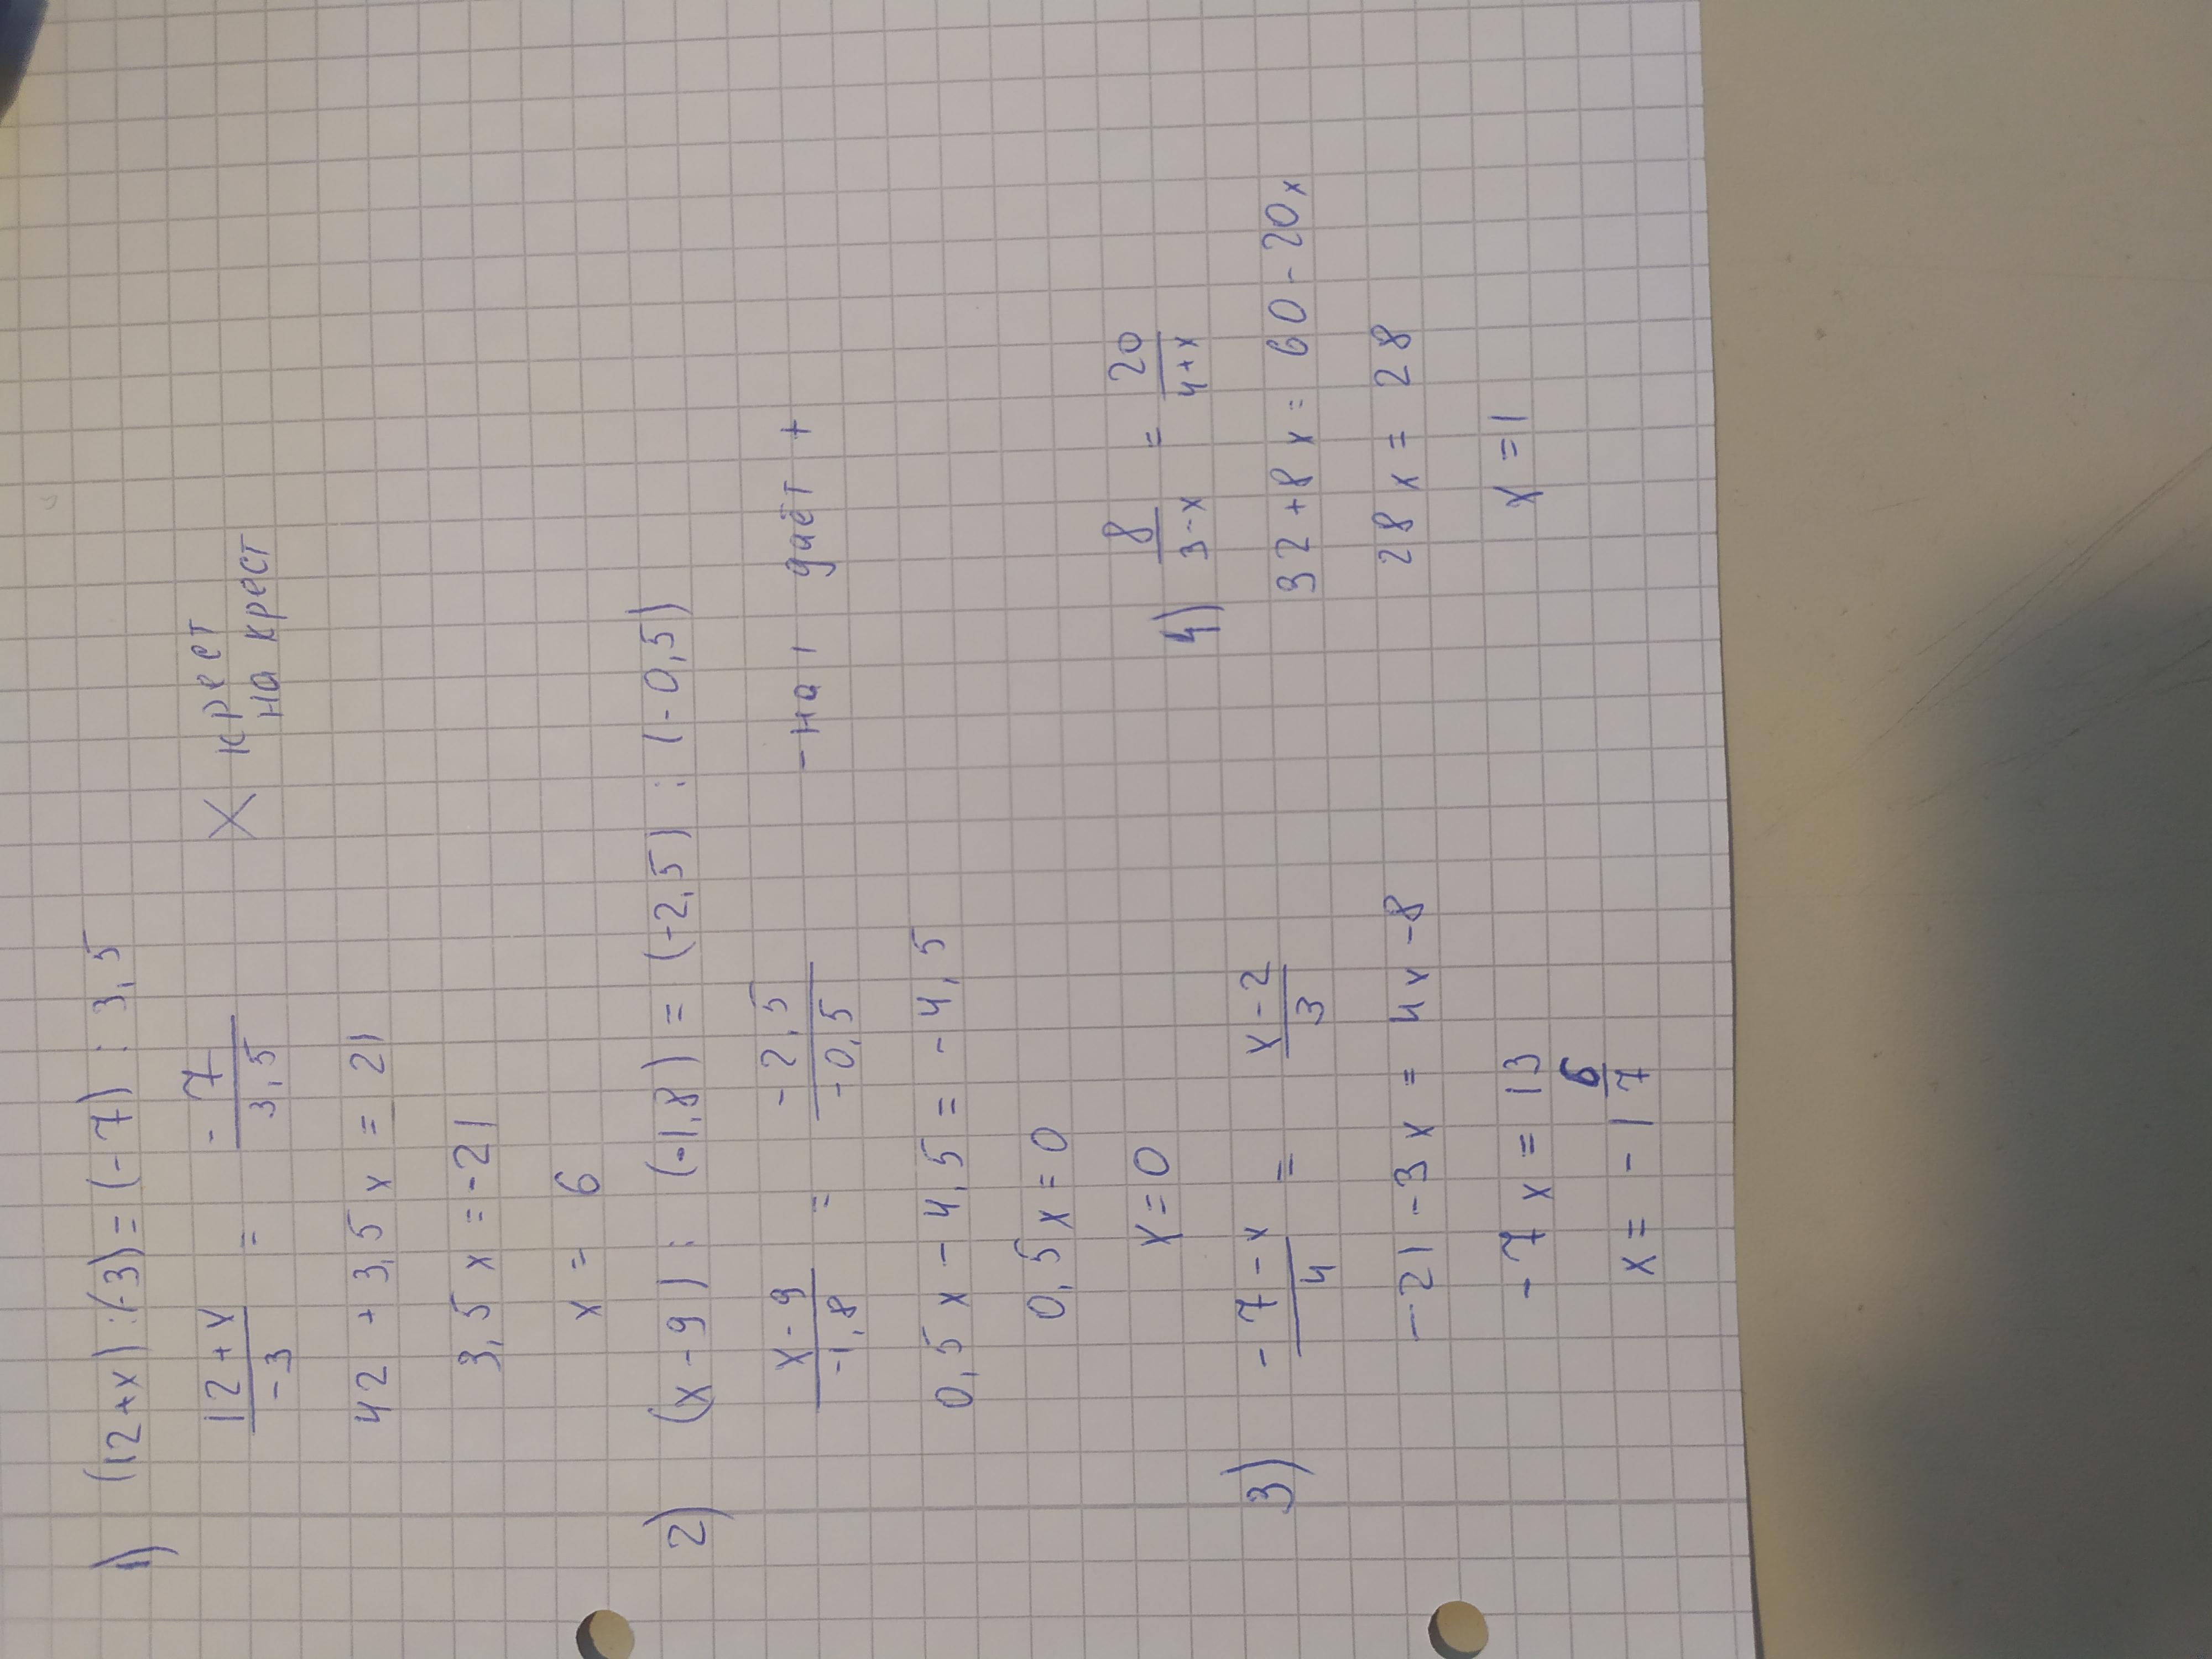 1) (12+x) : (-3) = (-7) : 3,5
12+x/-3 = -7/3,5 X крест
на крест
42 + 3,5x = 21
3,5x = -21
x = 6
2) (x-9) : (-1,8) = (-2,5) : (-0,5)
x-9/-1,8 = -2,5/-0,5 - на - даёт +
0,5x - 4,5 = -4,5
0,5x = 0
x = 0
3) -7-x/4 = x-2/3
-21 - 3x = 4x - 8
-7x = 13
x = -1 6/7
4) 8/3-x = 20/4+x
32 + 8x = 60 - 20x
28x = 28
x = 1